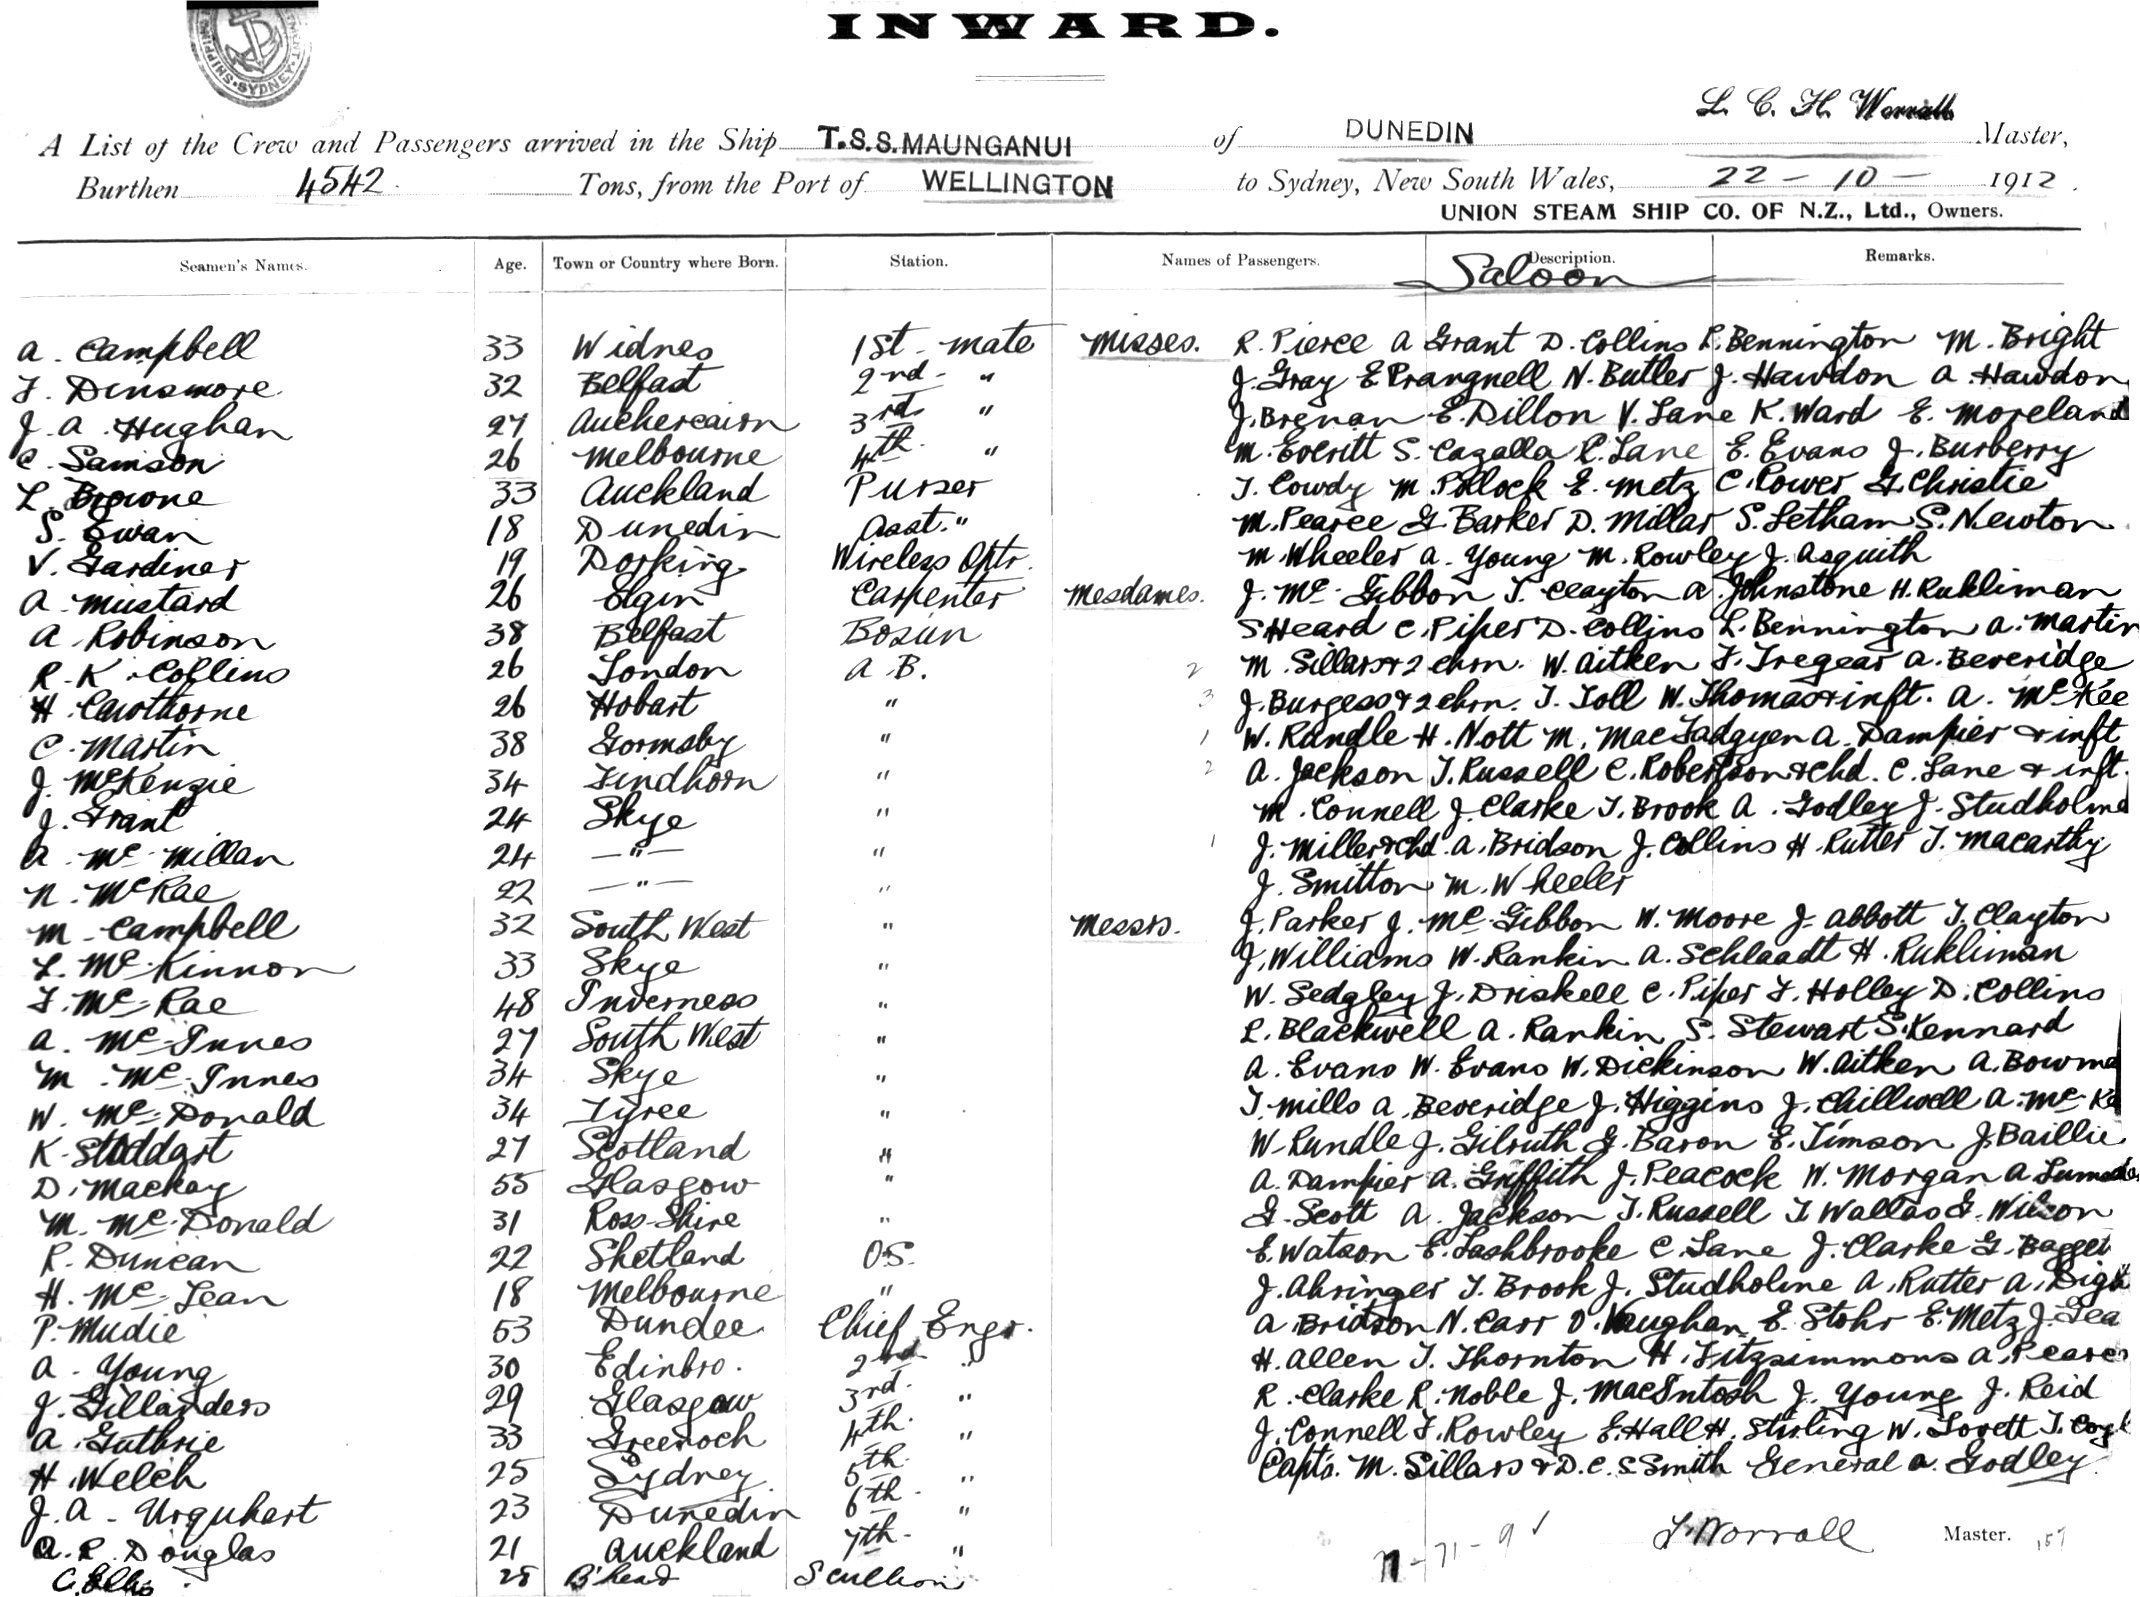 INWARD.
L. C. H. Worrall
A List of the Crew and Passengers arrived in the Ship T.S.S. MAUNGANUI of DUNEDIN Master,
Burthen 4542 Tons, from the Port of WELLINGTON to Sydney, New South Wales, 22 - 10 - 1912.
UNION STEAM SHIP CO. OF N.Z., Ltd., Owners.
Seamen's Names. Age. Town or Country where Born. Station. Names of Passengers. Description. Remarks.
Saloon
A. Campbell 33 Widnes 1st mate Misses. R. Pierce A Grant D. Collins L. Bennington M. Bright
F. Dinsmore 32 Belfast 2nd " J. Gray E Prangnell N. Butler J. Hawdon A. Hawdon
J. A. Hughan 27 Auchercairn 3rd " J. Brenan E. Dillon V. Lane K. Ward E. Moreland
C. Samson 26 Melbourne 4th " M. Everitt S. Cazalla R. Lane E. Evans J. Burberry
L. Browne 33 Auckland Purser T. Cowdy M. Pollock E. Metz C. Power G. Christie
S. Ewan 18 Dunedin Asst. " M. Pearce G Barker D. Millar S. Letham S. Newton
V. Gardiner 19 Dorking Wireless Optr. M. Wheeler A. Young M. Rowley J. Asquith
A. Mustard 26 Elgin Carpenter Mesdames. J. McGibbon T. Clayton A. Johnstone H. Rukliman
A. Robinson 38 Belfast Bosun S Heard C. Piper D. Collins L. Bennington A. Martin
R. K. Collins 26 London A B. 2 M. Sillars & 2 chrn. W. Aitken F. Tregear A. Beveridge
H. Cawthorne 26 Hobart " 3 J. Burgess & 2 chrn. T. Toll W. Thomas & inft. A. McKee
C. Martin 38 Gormsby " 1 W. Rundle H. Nott M. MacFadgyen A. Dampier & inft
J. McKenzie 34 Findhorn " 2 A. Jackson T. Russell C. Robertson & Chd. C. Lane & inft.
J. Grant 24 Skye " M. Connell J. Clarke T. Brook A. Godley J. Studholme
A. McMillan 24 — " — " 1 J. Miller & Chd. A. Bridson J. Collins H. Rutter T. Macarthy
N. McRae 22 — " — " J. Smitton M. Wheeler
M. Campbell 32 South West " Messrs. J. Parker J. McGibbon W. Moore J. Abbott T. Clayton
L. McKinnon 33 Skye " J. Williams W. Rankin A. Schlaadt H. Rukliman
F. McRae 48 Inverness " W. Sedgley J. Driskell C. Piper F. Holley D. Collins
A. McInnes 27 South West " L. Blackwell A. Rankin S. Stewart S. Kennard
M. McInnes 34 Skye " A. Evans W. Evans W. Dickinson W. Aitken A.
W. McDonald 34 Tyree " T. Mills A. Beveridge J. Higgins J. Chillwell A.
K. Stoddart 27 Scotland " W. Rundle J. Gilruth G. Baron E. Timson J. Baillie
D. Mackay 55 Glasgow " A. Dampier A. Griffith J. Peacock W. Morgan A
M. McDonald 31 Ross-Shire " G. Scott A. Jackson T. Russell T. Wallas G. Wilson
R. Duncan 22 Shetland O.S. E. Watson E. Lashbrooke C. Lane J. Clarke G. Bagget
H. McLean 18 Melbourne " J. Ahringer T. Brook J. Studholme A. Rutter A.
P. Mudie 53 Dundee Chief Engr. A Bridson N. Carr O. Vaughan E. Stohr E. Metz J.
A. Young 30 Edinbro. 2nd " H. Allen T. Thornton H. Fitzsimmons A.
J. Gillanders 29 Glasgow 3rd " R. Clarke R. Noble J. MacIntosh J. Young J. Reid
A. Guthrie 33 Greenoch 4th " J. Connell F. Rowley E. Hall H. Stirling W. Lovett T.
H. Welch 25 Sydney 5th " Capts. M. Sillars & D. C. S Smith General A. Godley.
J. A. Urquhart 23 Dunedin 6th "
A. R. Douglas 21 Auckland 7th " L. Worrall Master.
C. Ellis 28 B'head Scullion